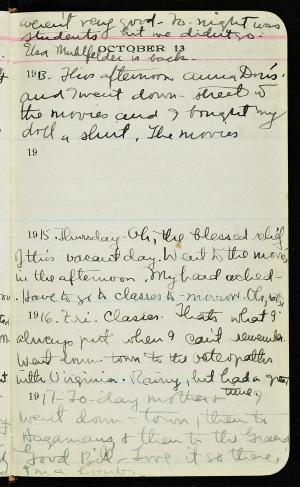 weren't very good. To-night was
students but we didn't go.
Elsa Muhlfelder is back.
OCTOBER 13
1913. This afternoon Anna Doris
and I went down-street to
the movies and I bought my
doll a shirt. The movies
19
1915. Thursday - Oh, the blessed relief
of this vacant day. Went to the movies
in the afternoon. My head ached -
Have to go to classes to-morrow. Oh,
1916. Fri. Classes. That's what I
always put when I can't remember
Went down town to the osteopaths
with Virginia. Rainy, but had a great
time.
1917 - To-day mother &
went down-town, then to
Hagamans & then to the Grand
Good Bill - Love it so there,
I'm a bomb.